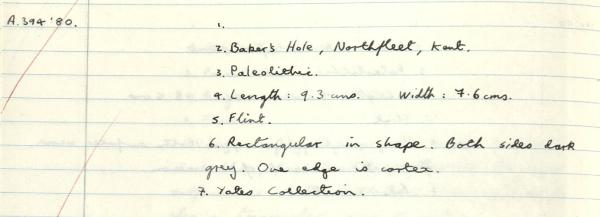 A.394'80. 1.
2. Baker's Hole, Northfleet, Kent.
3. Paleolithic.
4. Length: 9.3 cms. Width: 7.6 cms.
5. Flint.
6. Rectangular in shape. Both sides dark
grey. One edge is cortex.
7. Yates Collection.